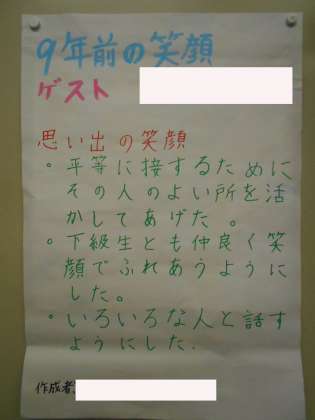 9年前の笑顔
ゲスト
思い出の笑顔
。平等に接するために
その人のよい所を活
かしてあげた。
。下級生とも仲良く笑
顔でふれあうように
した。
。いろいろな人と話す
ようにした.
作成者、